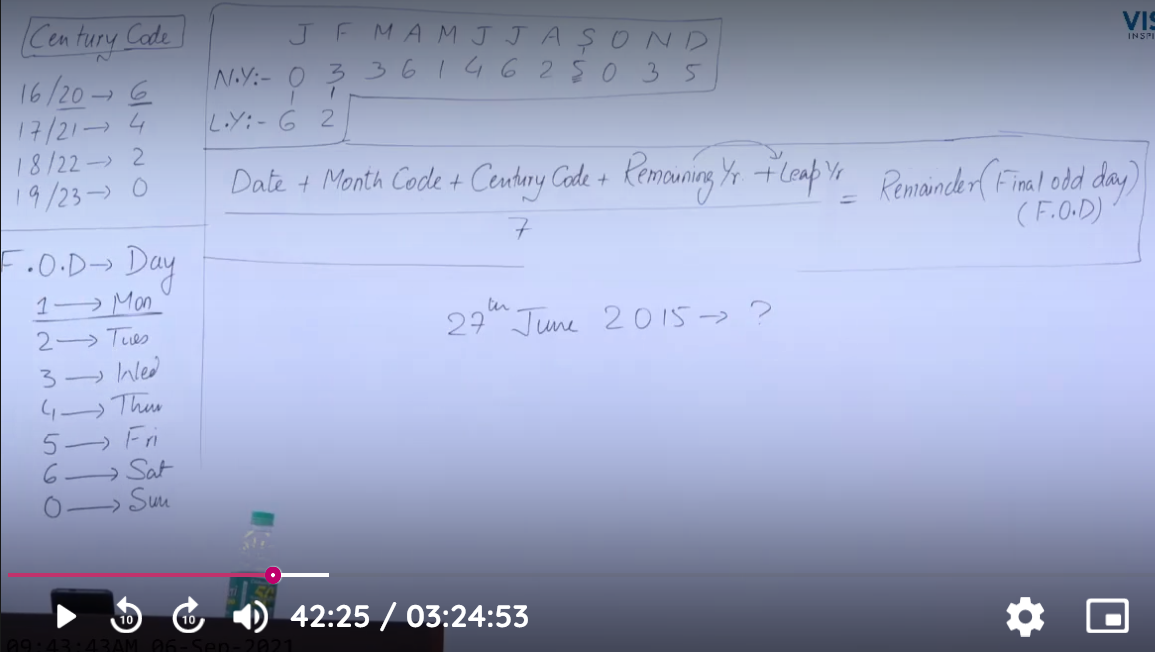 Century Code
16/20 → 6
17/21 → 4
18/22 → 2
19/23 → 0
J F M A M J J A S O N D
N.Y:- 0 3 3 6 1 4 6 2 5 0 3 5
L.Y:- 6 2
Date + Month Code + Century Code + Remaining Yr. + Leap Yr = Remainder (Final odd day)
7
(F.O.D)
F.O.D → Day
1 → Mon
2 → Tues
3 → Wed
4 → Thur
5 → Fri
6 → Sat
0 → Sun
27th June 2015 → ?
VIS
INSPI
10
10
42:25 / 03:24:53
09:43:43AM 06-Sep-2021